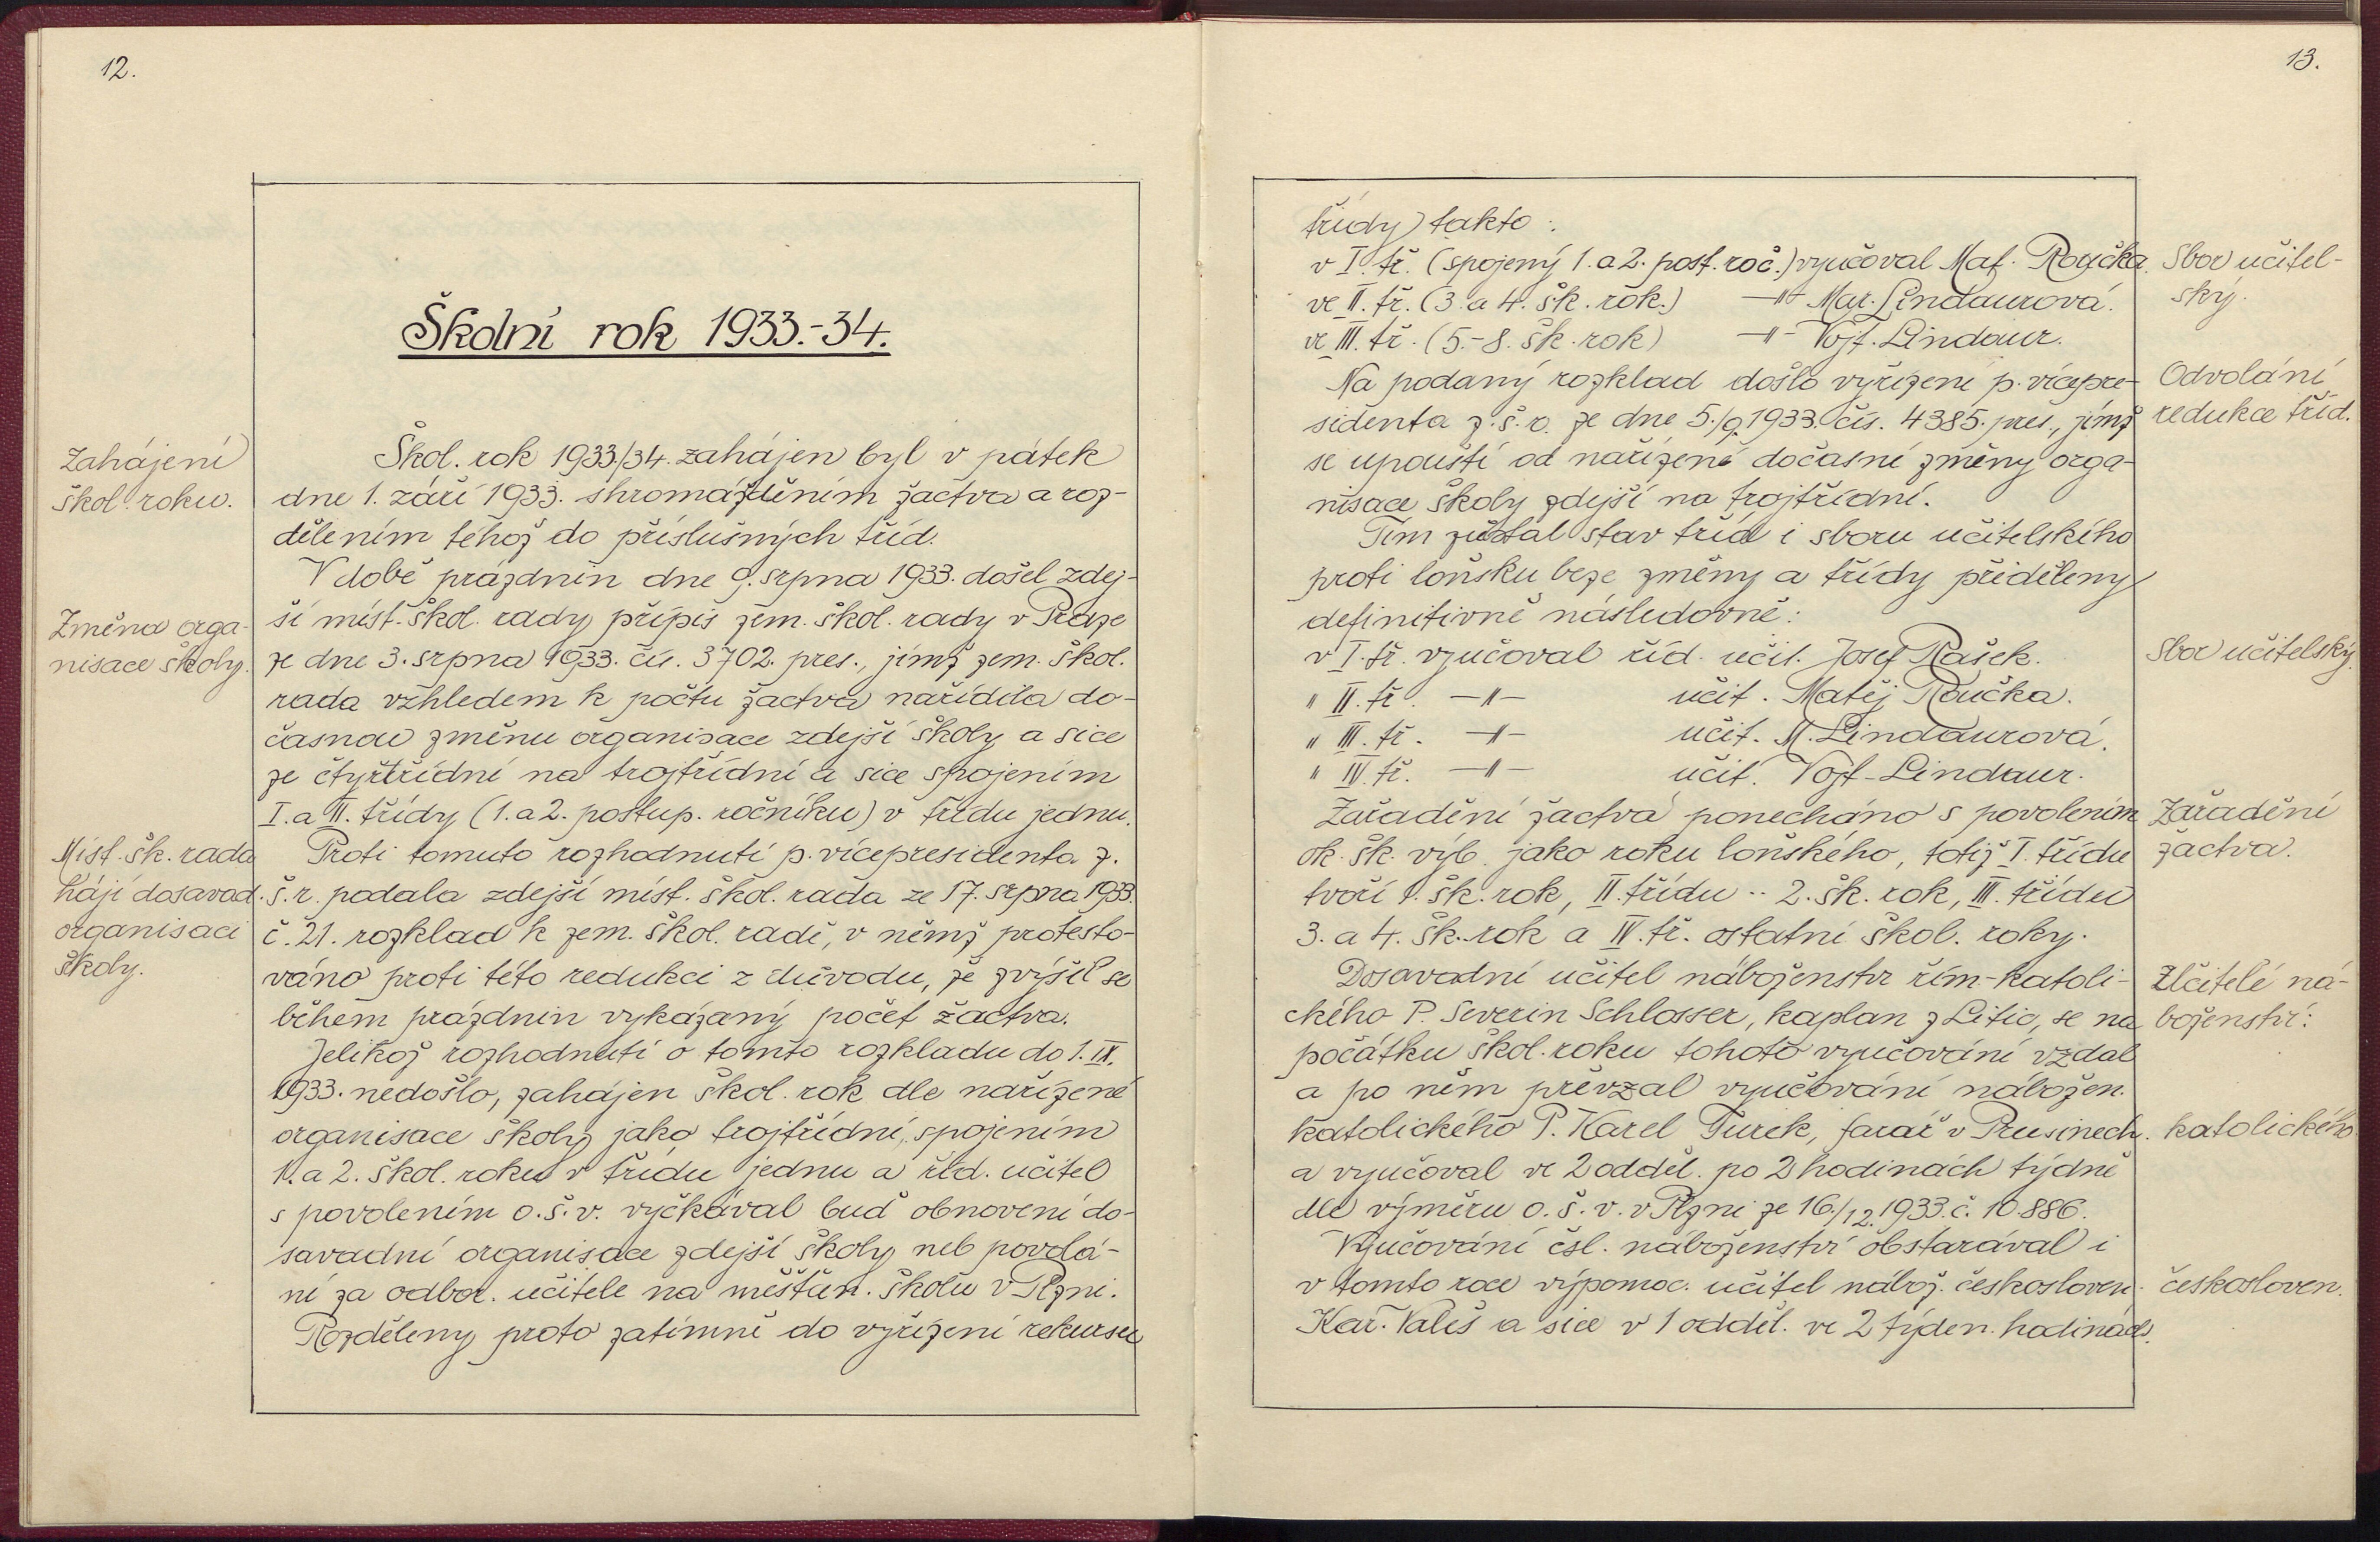 12.
Školní rok 1933.-34.
Zahájení
škol. roku.
Škol. rok 1933./34. zahájen byl v pátek
dne 1. září 1933. shromážděním žactva a roz-
dělením téhož do příslušných tříd.
V době prázdnin dne 9. srpna 1933. došel zdej-
Změna orga-
nisace školy.
ší míst. škol. rady přípis zem. škol. rady v Praze
ze dne 3. srpna 1933. čís. 3702. pres., jímž zem. škol.
rada vzhledem k počtu žactva nařídila do-
časnou změnu organisace zdejší školy a sice
ze čtyřtřídní na trojtřídní a sice spojením
I. a II. třídy (1. a 2. postup. ročníku) v třídu jednu.
Míst. šk. rada
hájí dosavad.
organisaci
školy.
Proti tomuto rozhodnutí p. vícepresidenta z.
š. r. podala zdejší míst. škol. rada ze 17. srpna 1933.
č. 21. rozklad k zem. škol. radě, v němž protesto-
váno proti této redukci z důvodu, že zvýšil se
během prázdnin vykázaný počet žactva.
Jelikož rozhodnutí o tomto rozkladu do 1. IX.
1933. nedošlo, zahájen škol. rok dle nařízené
organisace školy jako trojtřídní, spojením
1. a 2. škol. roku v třídu jednu a říd. učitel
s povolením o. š. v. vyčkával buď obnovení do-
savadní organisace zdejší školy neb povolá-
ní za odbor. učitele na měšťan. školu v Plzni.
Rozděleny proto zatímně do vyřízení rekursu
13.
třídy takto :
v I. tř. (spojený 1. a 2. post. roč.) vyučoval Mat. Roučka.
ve II. tř. (3. a 4. šk. rok.) -"- Mar. Lindaurová.
ve III. tř. (5.-8. šk. rok) -"- Vojt. Lindaur.
Sbor učitel-
ský.
Na podaný rozklad došlo vyřízení p. vícepre-
sidenta z. š. r. ze dne 5./9. 1933. čís. 4385. pres., jímž
se upouští od nařízené dočasné změny orga-
nisace školy zdejší na trojtřídní.
Odvolání
redukce tříd.
Tím zůstal stav tříd i sboru učitelského
proti loňsku beze změny a třídy přiděleny
definitivně následovně:
v I. tř. vyučoval říd. učit. Josef Rašek.
" II. tř. -"- učit. Matěj Roučka.
" III. tř. -"- učit. M. Lindaurová.
" IV. tř. -"- učit. Vojt. Lindaur.
Sbor učitelský.
Zařadění žactva ponecháno s povolením
ok. šk. výb. jako roku loňského, totiž I. třídu
tvoří 1. šk. rok, II. třídu .. 2. šk. rok, III. třídu
3. a 4. šk. rok a IV. tř. ostatní škol. roky.
Zařadění
žactva.
Dosavadní učitel náboženství řím-katoli-
ckého P. Severin Schlosser, kaplan z Litic, se na
počátku škol. roku tohoto vyučování vzdal
a po něm převzal vyučování nábožen.
katolického P. Karel Turek, farář v Prusinech.
a vyučoval ve 2 odděl. po 2 hodinách týdně
dle výměru o. š. v. v Plzni ze 16./12. 1933. č. 10.886.
Učitelé ná-
boženství:
katolického
Vyučování čsl. náboženství obstarával i
v tomto roce výpomoc. učitel nábož. českosloven.
Kar. Valeš a sice v 1 odděl. ve 2 týden. hodinách.
českosloven.